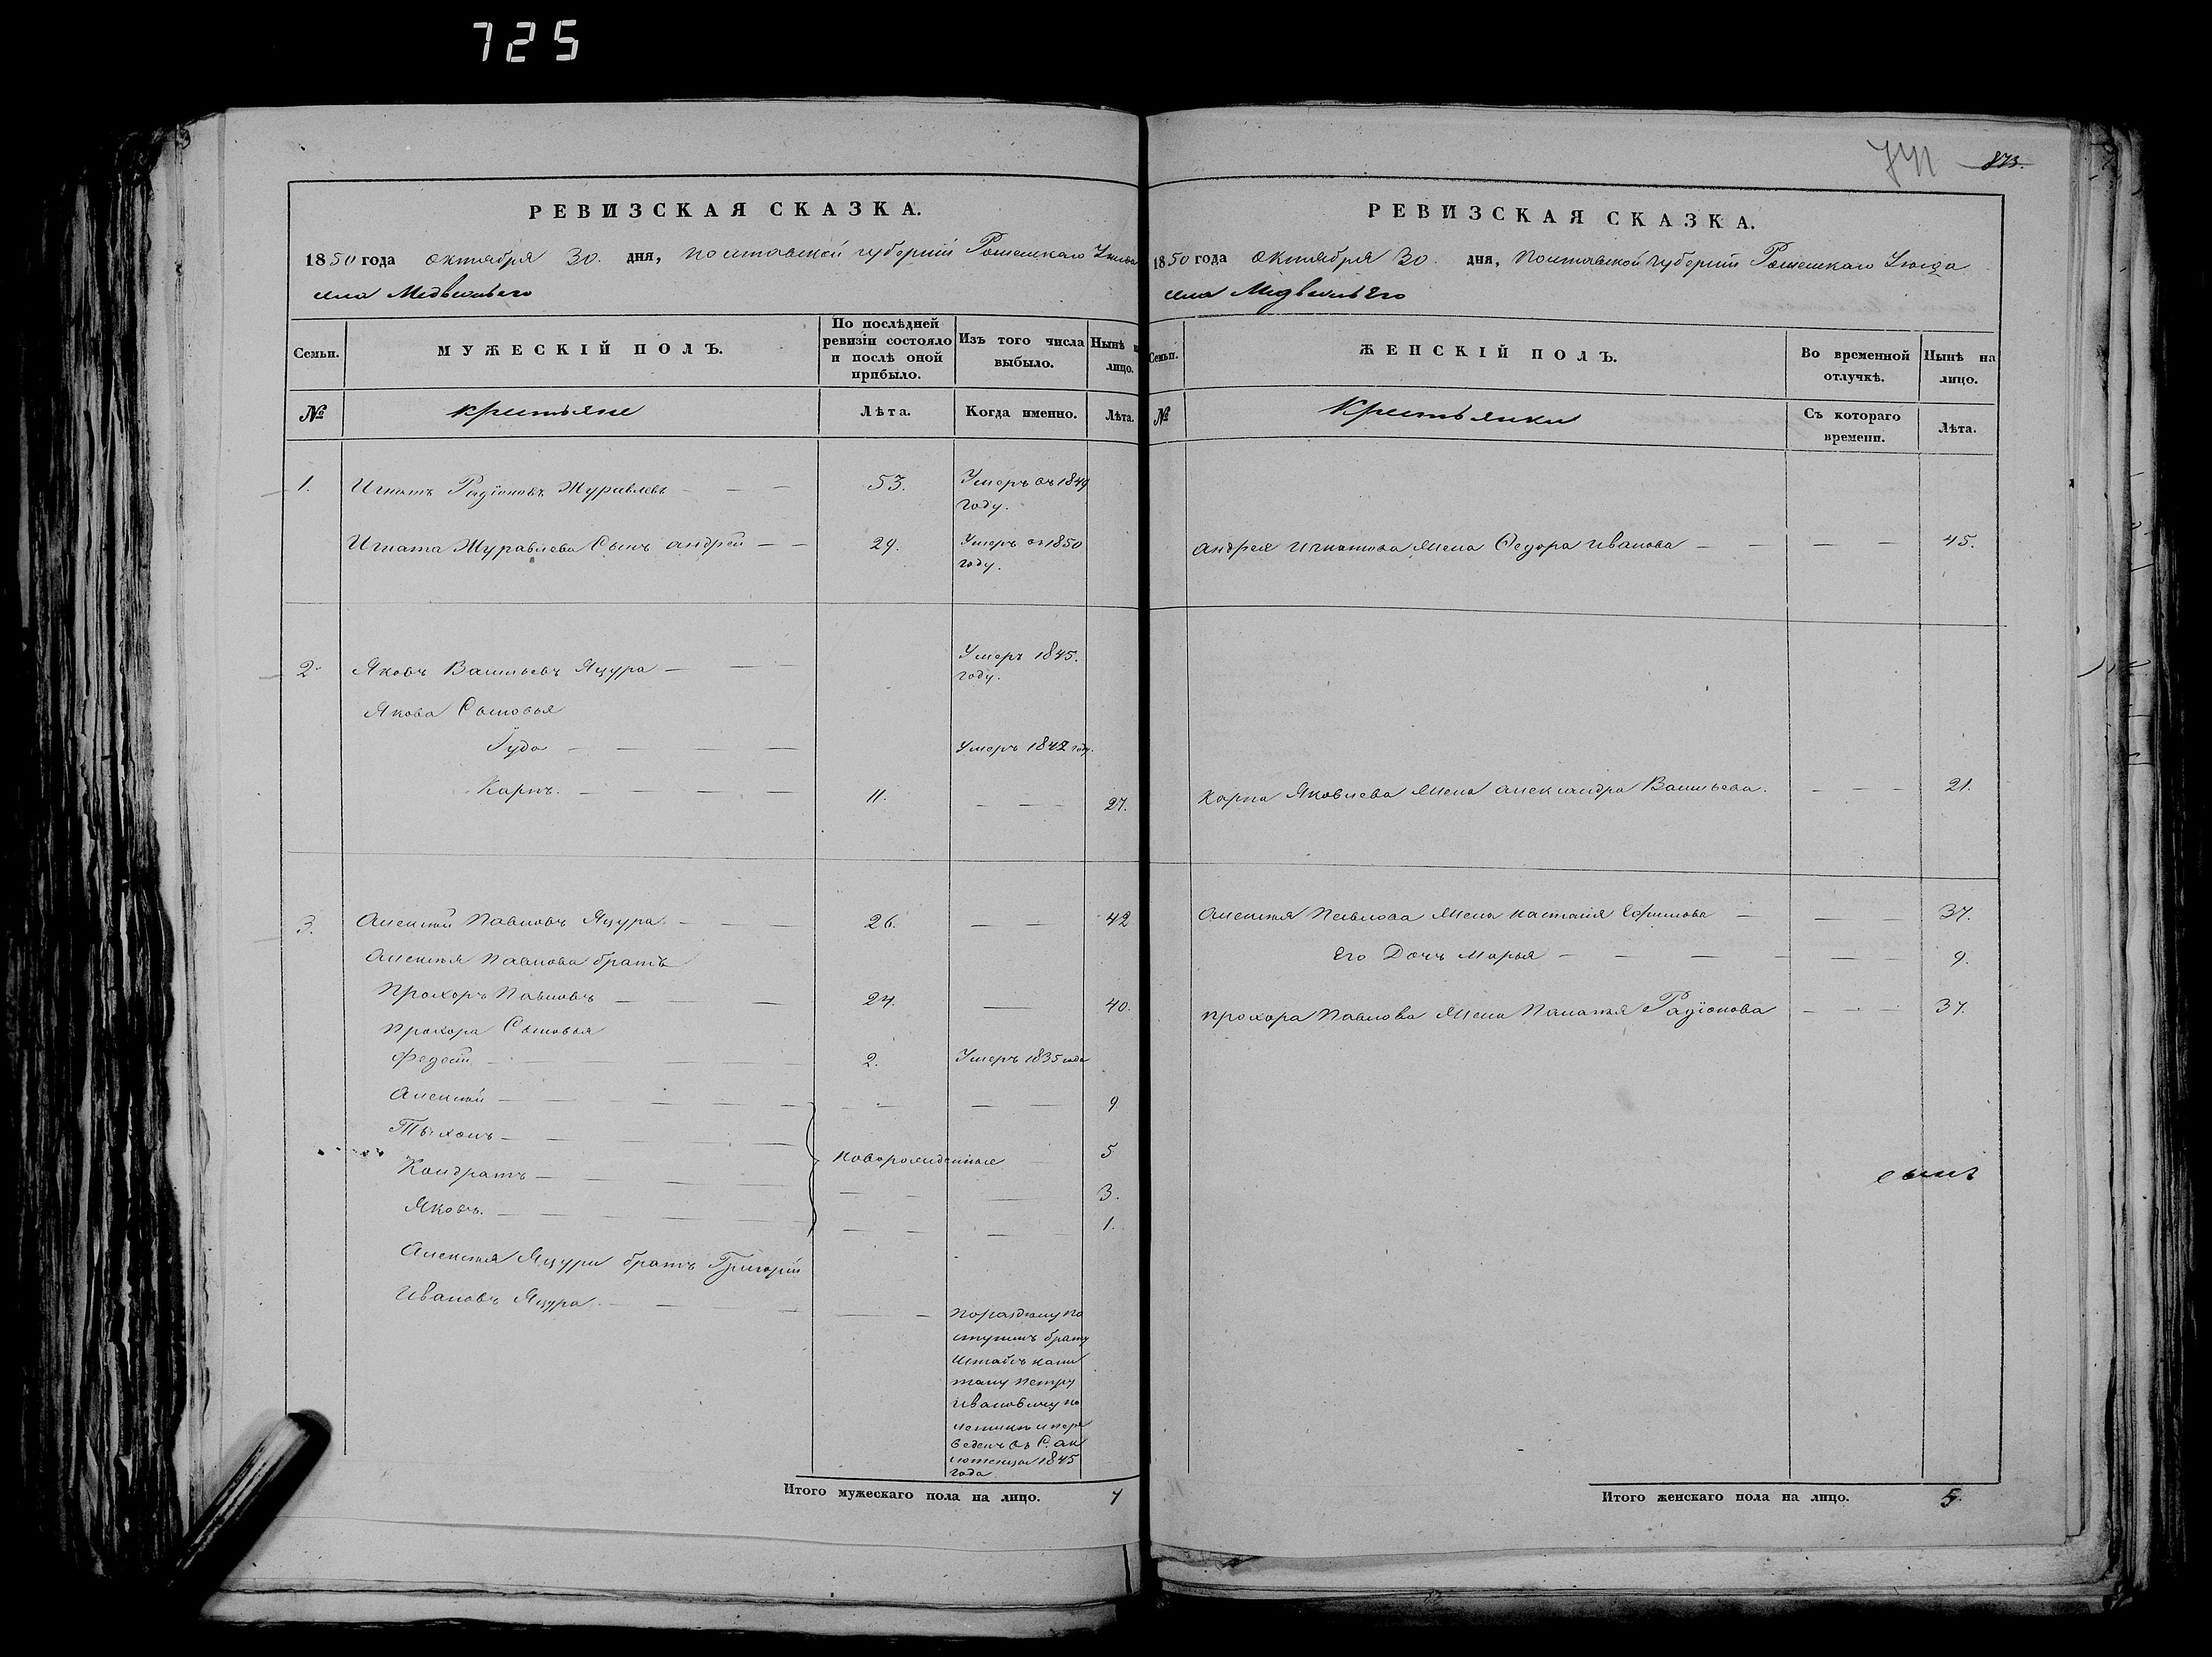 725
873.
РЕВИЗСКАЯ СКАЗКА.
1850 года октября 30. дня, Полтавской губерніи Роменскаго Уезда
села Медвежьего
Семьи.
МУЖЕСКІЙ ПОЛЪ.
По послѣдней ревизіи состояло и послѣ оной прибыло.
Изъ того числа выбыло.
Нынѣ н лицо.
№
крестьяне
Лѣта.
Когда именно.
Лѣта.
1. Игнатъ Радіоновъ Журавлевъ — — — 53. Умеръ въ 1849
году.
Игната Журавлева Сынъ андрей — — 29. Умеръ въ 1850
году.
2. Яковъ Васильевъ Яцура — — — Умеръ 1845.
году.
Якова Сыновья
Іуда — — — — Умеръ 1842 году.
Карпъ. — — — — 11. — — — 27.
3. Алексѣй Павловъ Яцура. — — — 26. — — 42
Алексѣя Павлова братъ
Прохоръ Павловъ — — — 24. — 40.
Прохора Сыновья
Федотъ — — — — 2. Умеръ 1835 года
Алексѣй — — — — — — — — 9.
Тыхонъ — — — — — 5
Кондратъ — — — — новорожденные — 3.
Яковъ. — — — — — — — — 1.
Алексѣя Яцуры братъ Григорій
Ивановъ Яцура. — — — — — — По раздѣлу по
ступилъ брату
Штабсъ капи
тану Петру
Ивановичу По
и пере
веденъ въ С.
1845
года
Итого мужескаго пола на лицо. 7
РЕВИЗСКАЯ СКАЗКА.
1850 года Октября 30. дня, Полтавской губерніи Роменскаго Уезда
села Медвежьего
Семьи.
ЖЕНСКІЙ ПОЛЪ.
Во временной отлучкѣ.
Нынѣ на лицо.
№
Крестьянки
Съ котораго времени.
Лѣта.
андрея игнатова жена Федора иванова — — — — 45.
Карпа Яковлева жена александра Васильева. — — — 21.
Алексѣя Павлова жена настасія Ефимова — — — 37.
Его Дочь Марья — — — — — — 9.
прохора Павлова жена Палагея Радіонова — — — 37.
сынъ
Итого женскаго пола на лицо. 5.